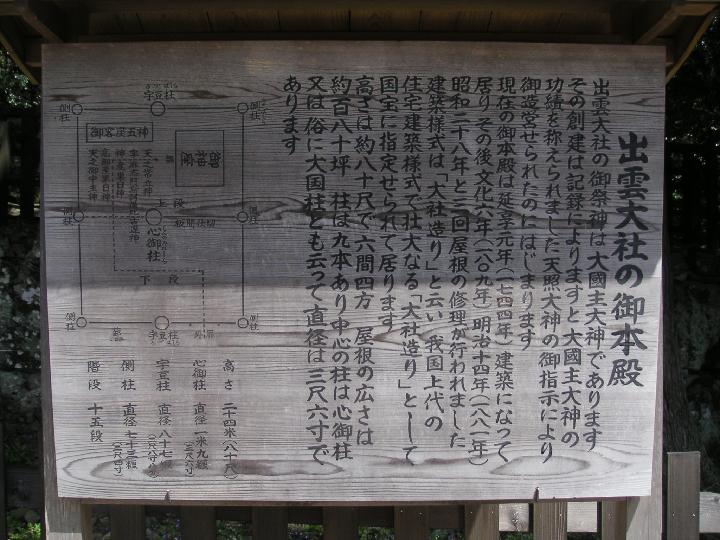 出雲大社の御本殿
出雲大社の御祭神は大國主大神であります
その創建は記録によりますと大國主大神の
功績を称えられました天照大神の御指示により
御造営せられたのにはじまります
現在の御本殿は延享元年(一七四四年)建築になって
居り その後文化六年(一八〇九年)明治十四年(一八八一年)
昭和二十八年と三回屋根の修理が行われました
建築様式は「大社造り」と云い 我国上代の
住宅建築様式で壮大なる「大社造り」として
国宝に指定せられて居ります
高さは約八十尺で六間四方 屋根の広さは
約百八十坪 柱は九本あり中心の柱は心御柱
又は俗に大国柱とも云って直径は三尺六寸で
あります
側柱
宇豆柱
側柱
御客座五神
天之常立神
宇麻志阿斯訶備比古遅神
神産巣日神
高御産巣日神
天之御中主神
御神座
上段
側柱
心御柱
側柱
下段
側柱
宇豆柱
側柱
高さ 二十四米(八十尺)
心御柱 直径 一米九糎
(三尺六寸)
宇豆柱 直径 八十七糎
側柱 直径 七十三糎
(二尺四寸)
階段 十五段